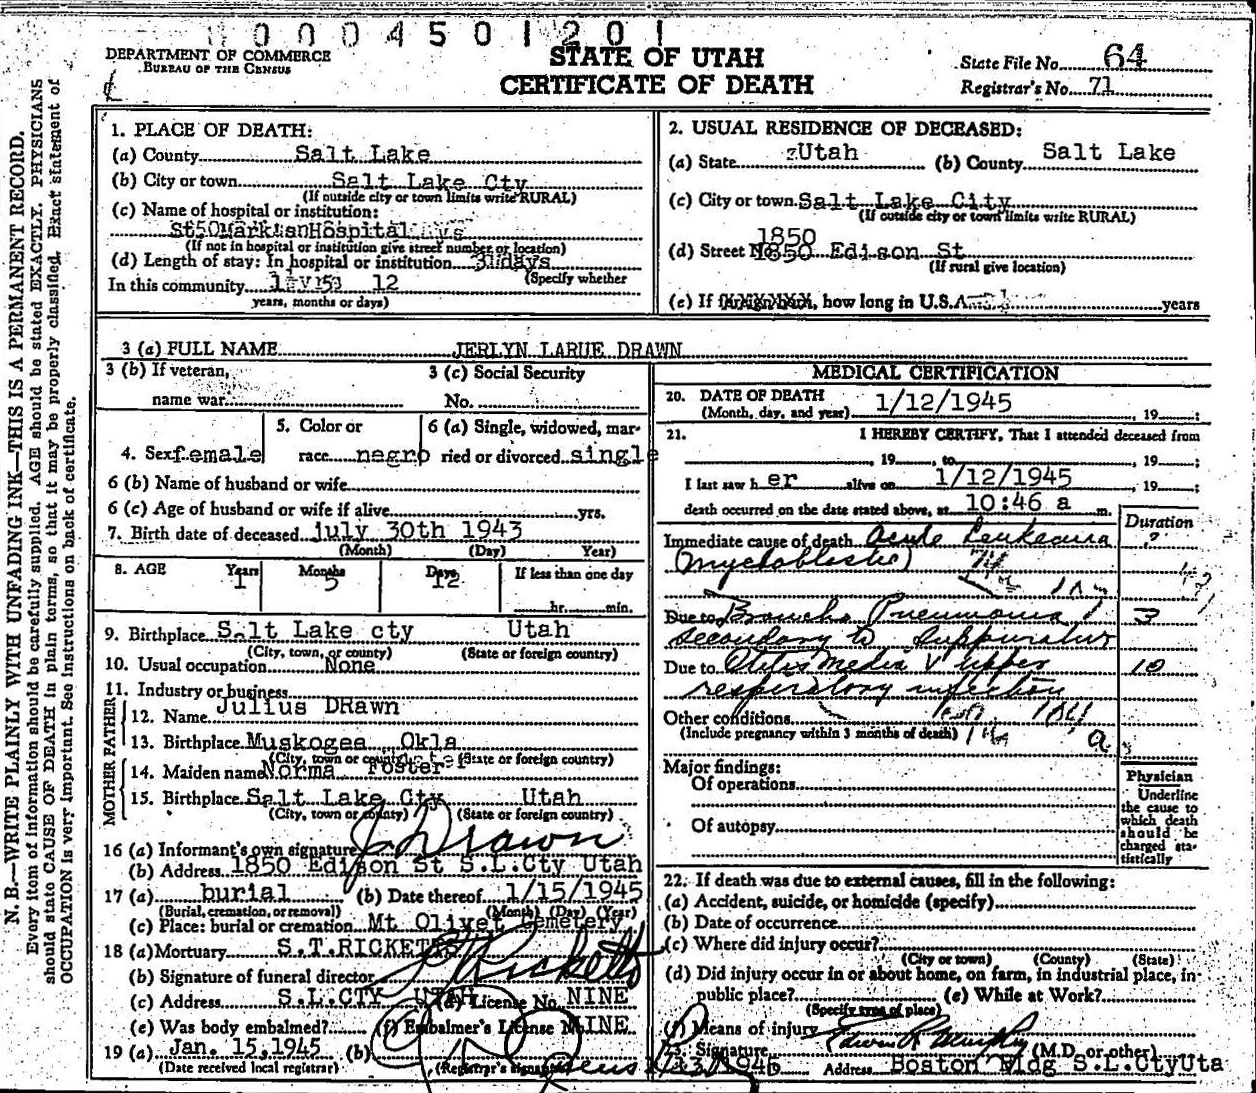 0004501201
DEPARTMENT OF COMMERCE
BUREAU OF THE CENSUS
STATE OF UTAH
CERTIFICATE OF DEATH
State File No. 64
Registrar's No. 71
N. B.—WRITE PLAINLY WITH UNFADING INK—THIS IS A PERMANENT RECORD.
Every item of information should be carefully supplied. AGE should be stated EXACTLY. PHYSICIANS
should state CAUSE OF DEATH in plain terms, so that it may be properly classified. Exact statement of
OCCUPATION is very important. See instructions on back of certificate.
1. PLACE OF DEATH:
(a) County Salt Lake
(b) City or town Salt Lake Cty
(If outside city or town limits write RURAL)
(c) Name of hospital or institution:
Hospital
(If not in hospital or institution give street number or location)
(d) Length of stay: In hospital or institution days
(Specify whether
In this community 12
years, months or days)
2. USUAL RESIDENCE OF DECEASED:
(a) State Utah (b) County Salt Lake
(c) City or town Salt Lake City
(If outside city or town limits write RURAL)
1850
(d) Street No 1850 Edison St
(If rural give location)
(e) If , how long in U.S.A. years
3 (a) FULL NAME JERLYN LARUE DRAWN
3 (b) If veteran,
name war
3 (c) Social Security
No.
4. Sex female
5. Color or
race negro
6 (a) Single, widowed, mar-
ried or divorced single
6 (b) Name of husband or wife
6 (c) Age of husband or wife if alive yrs.
7. Birth date of deceased july 30th 1943
(Month) (Day) Year)
8. AGE Years Months Days If less than one day
1 5 12
hr. min.
9. Birthplace Salt Lake cty Utah
(City, town, or county) (State or foreign country)
10. Usual occupation None
11. Industry or business
FATHER
12. Name Julius DRawn
13. Birthplace Muskogea Okla
(City, town or county) (State or foreign country)
MOTHER
14. Maiden name Norma Foster
15. Birthplace Salt Lake Cty Utah
(City, town or county) (State or foreign country)
16 (a) Informant's own signature J. Drawn
(b) Address 1850 Edison St S.L.Cty Utah
17 (a) burial (b) Date thereof 1/15/1945
(Burial, cremation, or removal) (Month) (Day) (Year)
(c) Place: burial or cremation Mt Olivet Cemetery
18 (a) Mortuary S.T.RICKETTS
(b) Signature of funeral director Ricketts
(c) Address S.L.CTY UTAH (d) License No. NINE
(e) Was body embalmed? (f) Embalmer's License No NINE
19 (a) Jan. 15,1945 (b)
(Date received local registrar) (Registrar's signature)
MEDICAL CERTIFICATION
20. DATE OF DEATH
(Month, day, and year) 1/12/1945 , 19 ;
21. I HEREBY CERTIFY, That I attended deceased from
, 19 , to , 19 ;
I last saw h er alive on 1/12/1945 , 19 ;
death occurred on the date stated above, at 10:46 a m.
Duration
Immediate cause of death Acute Leukemia ?
(Myeloblastic)
Due to Broncho Pneumonia 3
secondary to Suppurative
Due to Otitis Media & upper 10
respiratory infection
Other conditions
(Include pregnancy within 3 months of death)
Major findings:
Of operations
Of autopsy
Physician
Underline
the cause to
which death
should be
charged sta-
tistically
22. If death was due to external causes, fill in the following:
(a) Accident, suicide, or homicide (specify)
(b) Date of occurrence
(c) Where did injury occur?
(City or town) (County) (State)
(d) Did injury occur in or about home, on farm, in industrial place, in
public place? (e) While at Work?
(Specify type of place)
(f) Means of injury
23. Signature Edwin R. Murphy (M.D. or other)
Address Boston Bldg S.L.CtyUta